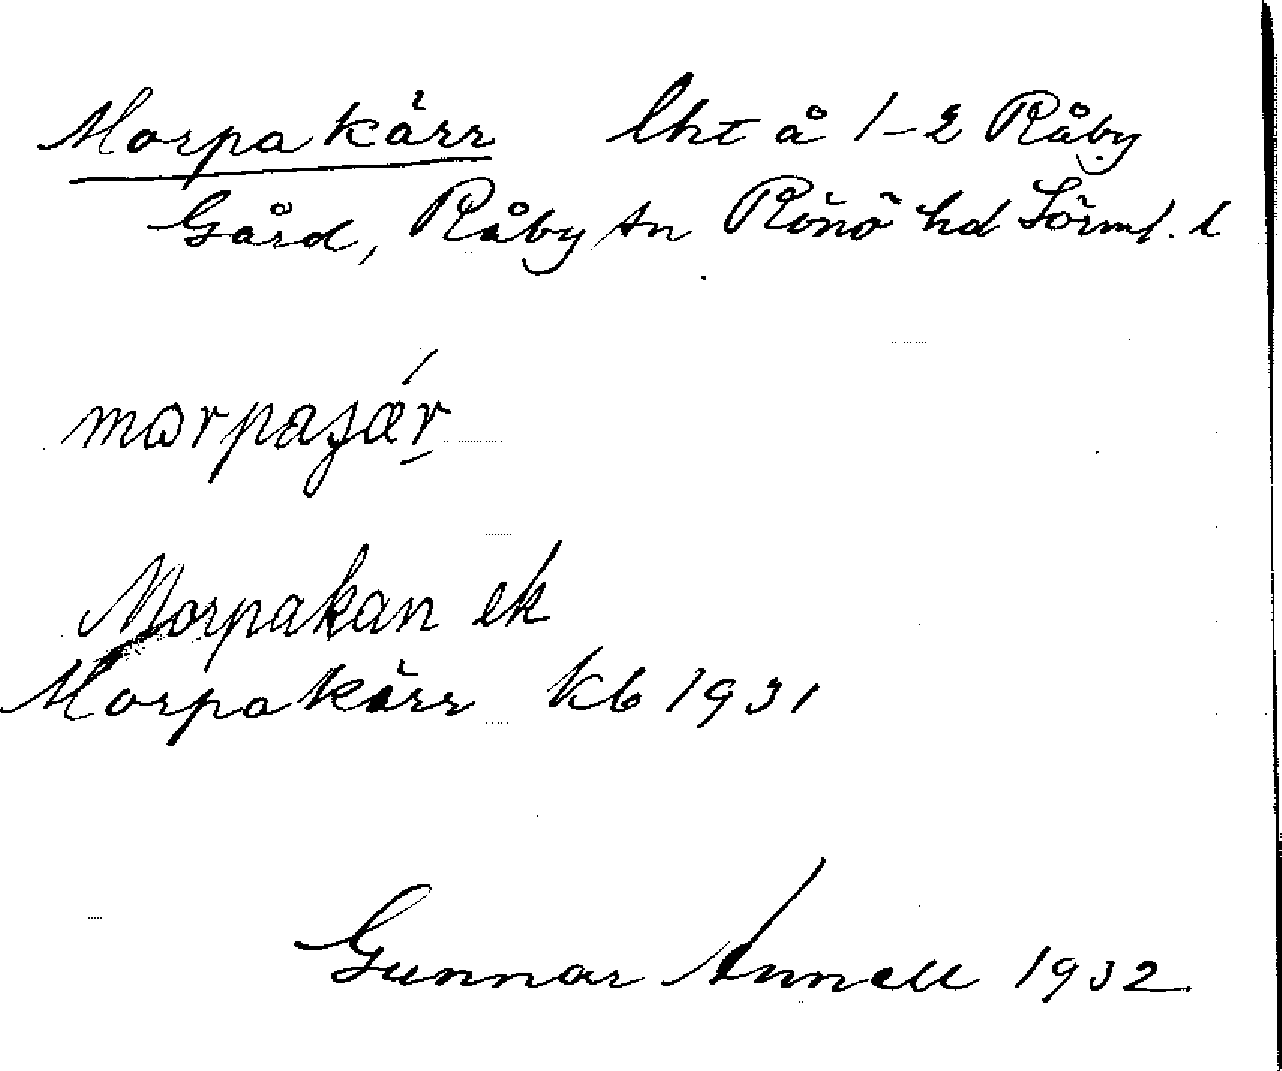 Morpakärr lht å 1-2 Råby
Gård, Råby sn Rönö hd Sörml. l
Morpakan ek
Morpakärr kb 1931
Gunnar Annell 1932